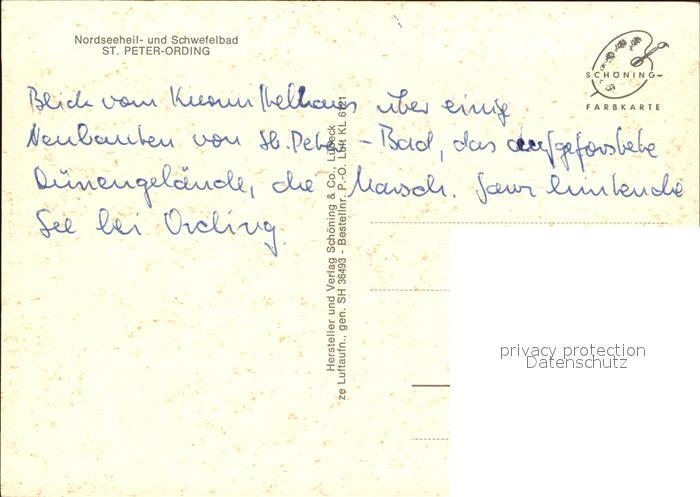 Nordseeheil- und Schwefelbad
ST. PETER-ORDING
SCHÖNING-
FARBKARTE
Blick vom über einige
Neubauten von St. Peter - Bad, das aufgeforstete
Dünengelände, die Marsch. Ganz hinten die
See bei Ording.
Hersteller und Verlag Schöning & Co., Lübeck
ze Luftaufn., gen. SH 36493 - Bestellnr. P.-O. Luft KL 6121
privacy protection
Datenschutz